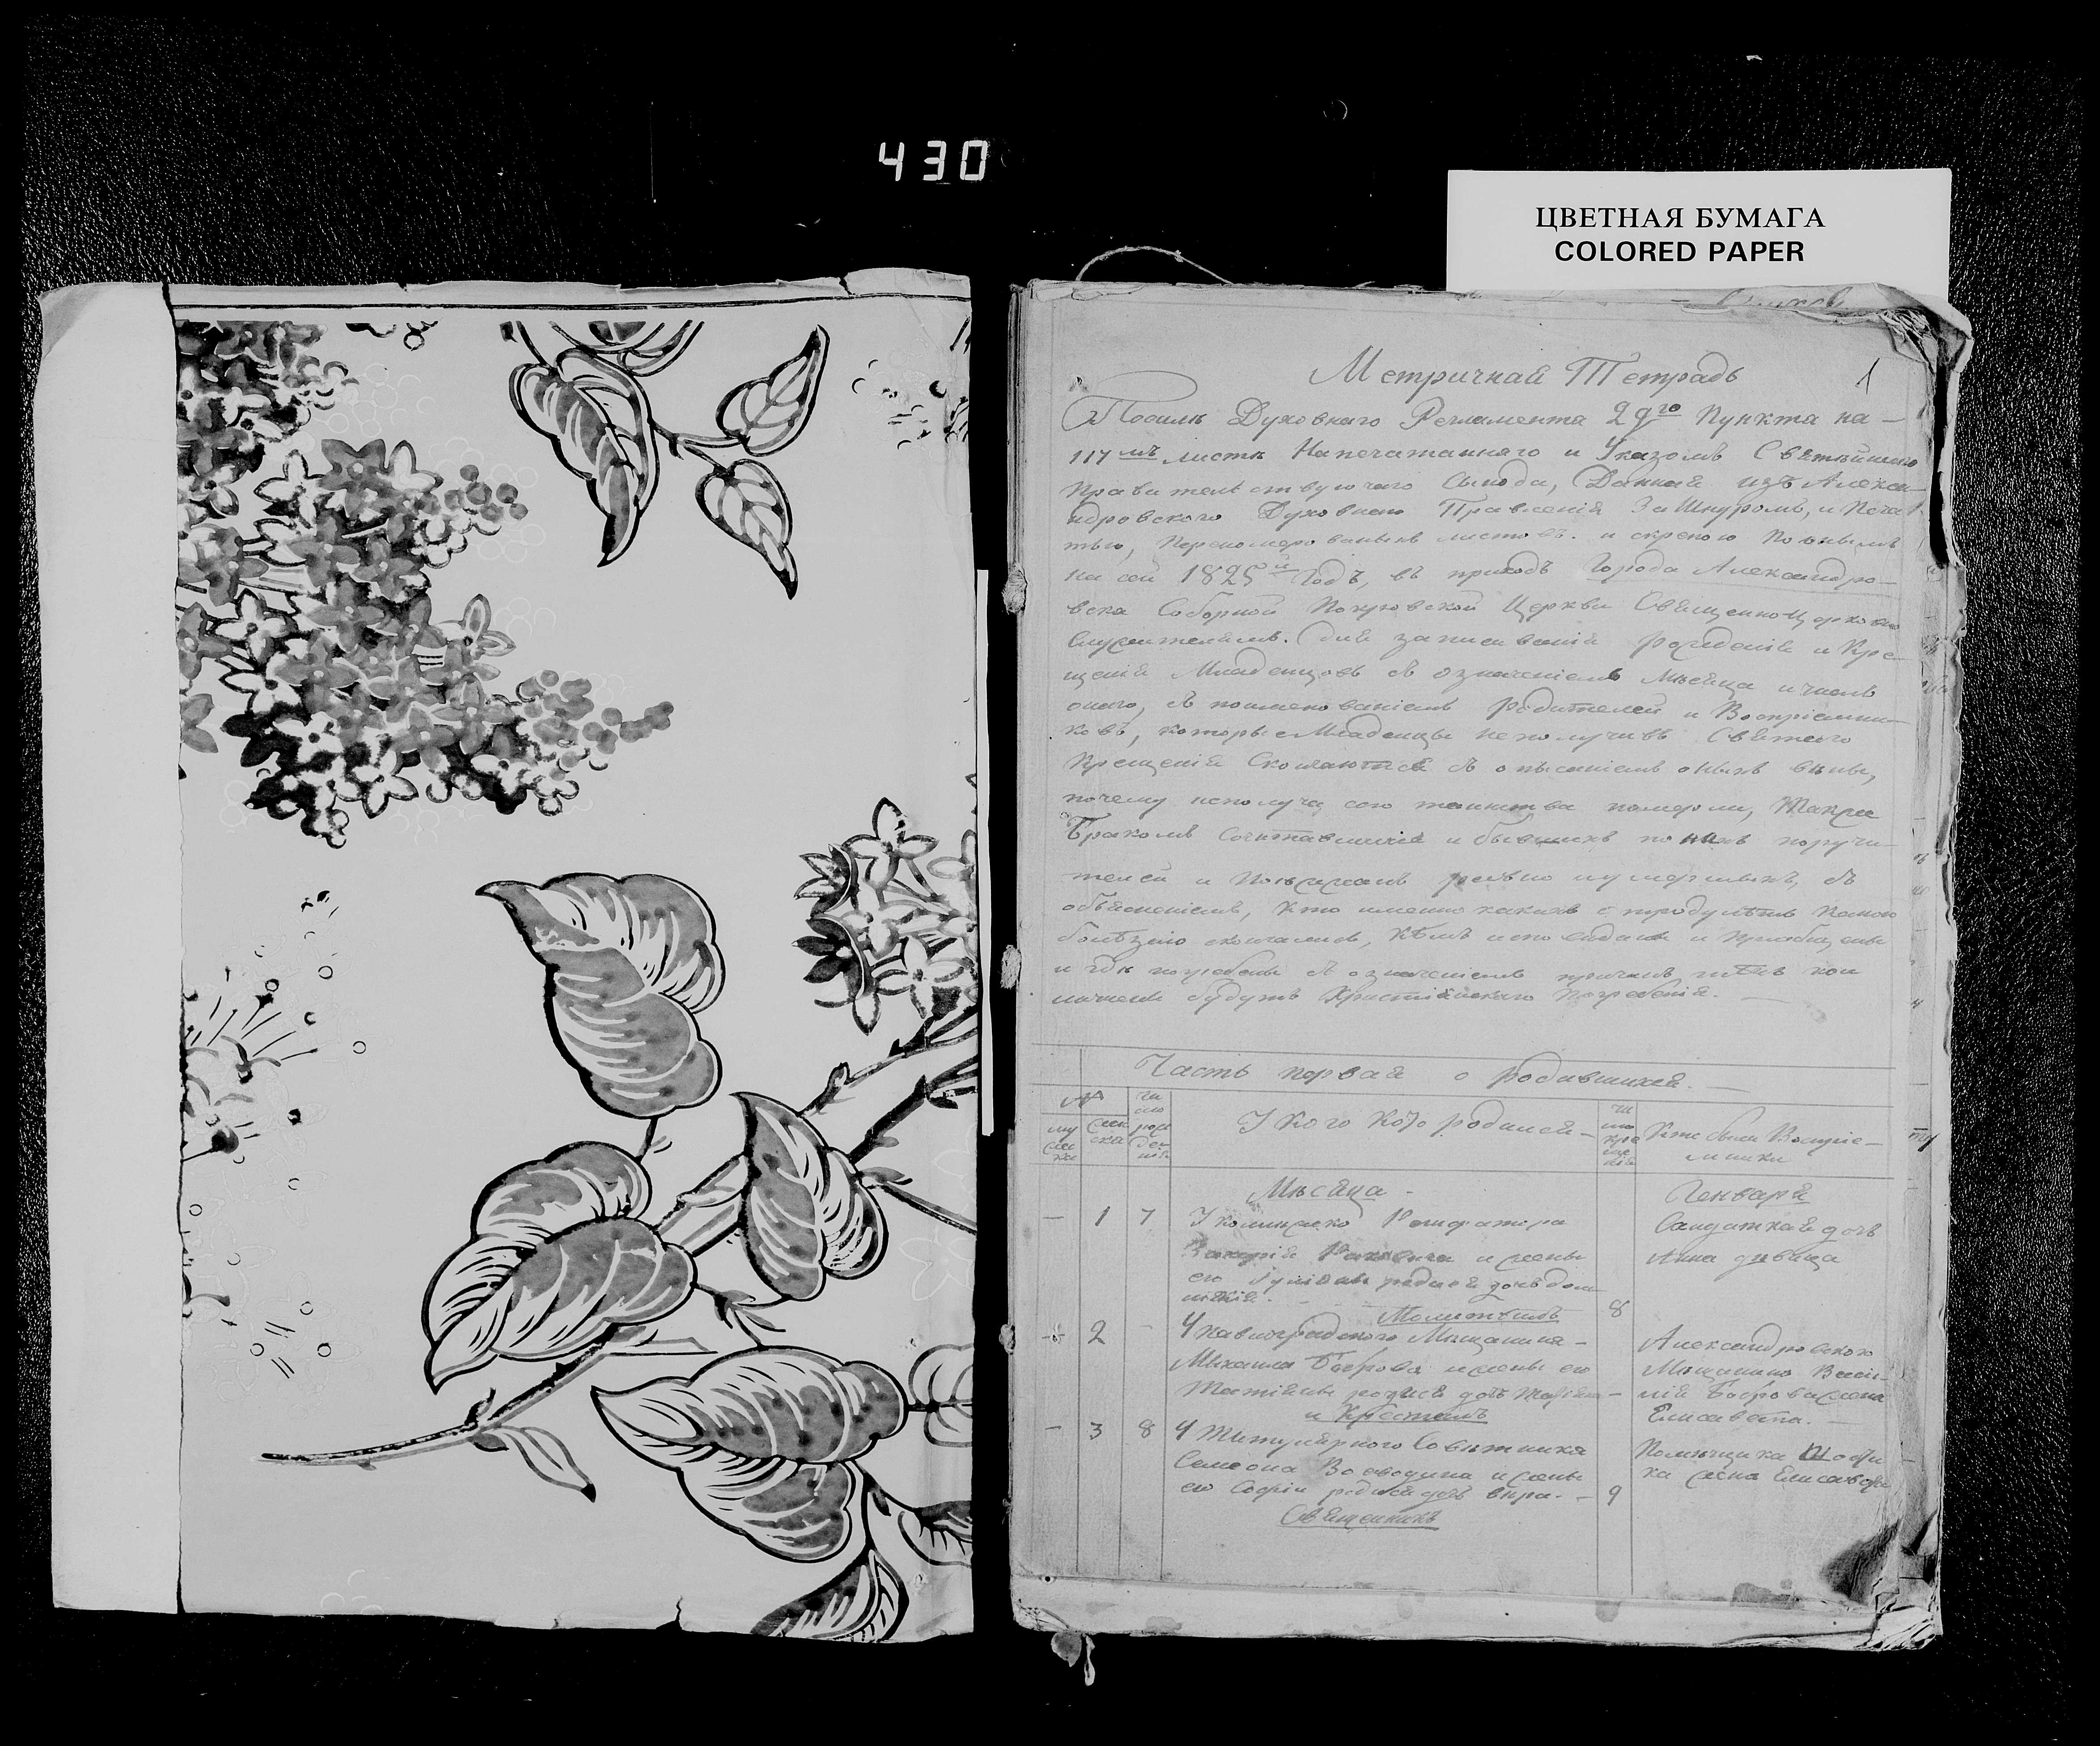 430
ЦВЕТНАЯ БУМАГА
COLORED PAPER
Метричная Тетрадь
1
Посилѣ Духовнаго Регламента 2 го Пункта на
117 мъ листѣ Напечатаннаго и Указомъ Святѣйшаго
Правительствующаго Сѵнода, Данная изъ Алекса-
ндровского Духовного Правленія За Шнуромъ, и Печа
тью, листовъ. и скрепою
на сей 1825 й Годъ, въ приходъ Города Александро-
вска Соборной Покровской Церкви Священноцерковно
служителямъ. для записыванія рожденія и Кре-
щенія Младенцовъ съ означеніемъ Мѣсяца и числъ
онаго, съ поименованіемъ Родителей и Воспріемни-
ковъ, которые Младенцы неполучивъ Святого
Крещенія Скончаются съ описаніемъ оныхъ вины,
почему неполуча сего таинства померли, Также
Бракомъ Сочитавшися и бывшихъ по нихъ поручи-
телей и умершихъ, съ
объясненіемъ, кто именно какихъ какою
болѣзнію скончались, кѣмъ исповѣданы и приобщены
и гдѣ погребены съ означеніемъ причинъ кои
лишены будутъ Христіянского Погребенія.
Часть первая о родившихся.
№
му
жес
ка
жен
ска
чи
сло
рож
де-
нія
У Кого Кто родился
чи
сло
кре
ще
нія
Кто были Воспріе-
мники
Мѣсяца
Генваря
1 7
и жены
его родися дочь
8
дочь
Анна дѣвица
Молитвилъ
2
Мѣщанина
Михаила Боброва и жены его
Татіяны родися дочь
и Крестилъ
Александровского
Мѣщанина Васи-
лія Боброва жена
Елисавета.
3 8
У Титулярного Совѣтника
Симеона Воеводина и жены
его Софіи родися дочь
9
Помѣщика
ка жена Елисавета
Священникъ